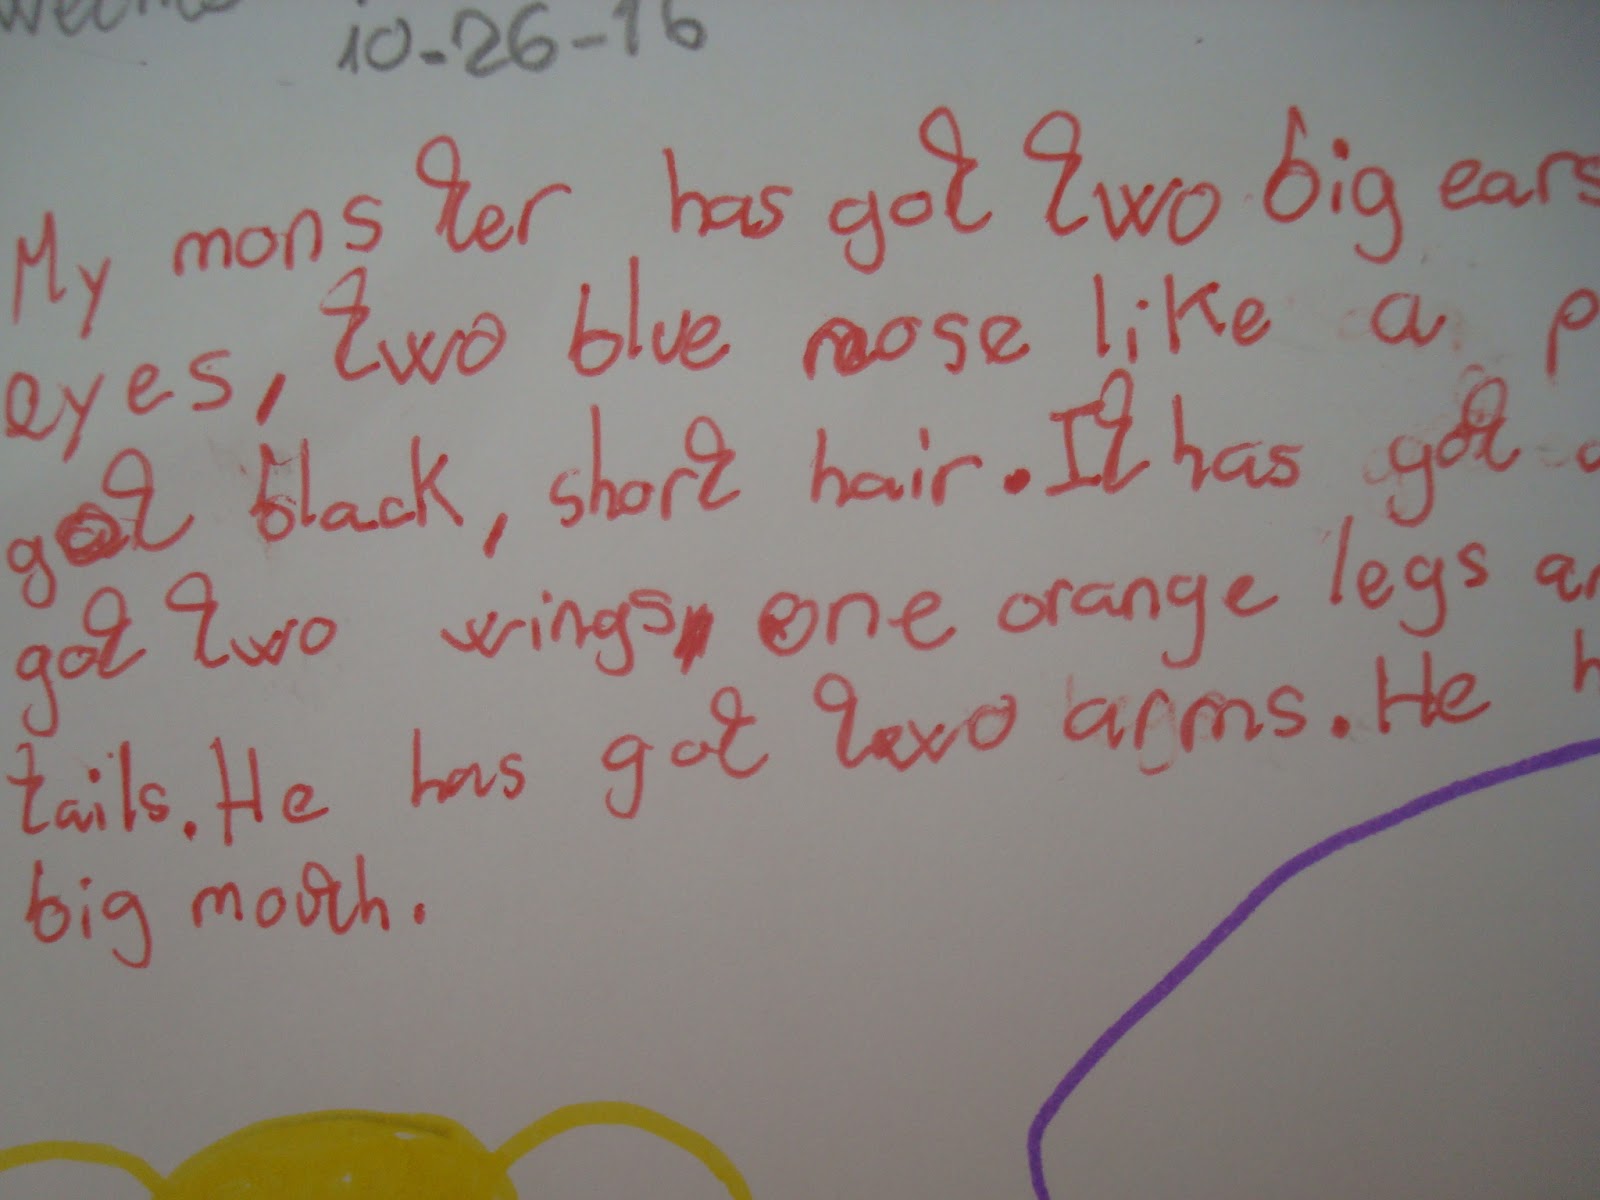 10-26-16
My monster has got two big ears
eyes, two blue nose like a p
got black, short hair. It has got
got two wings, one orange legs an
tails. He has got two arms. He h
big mouth.